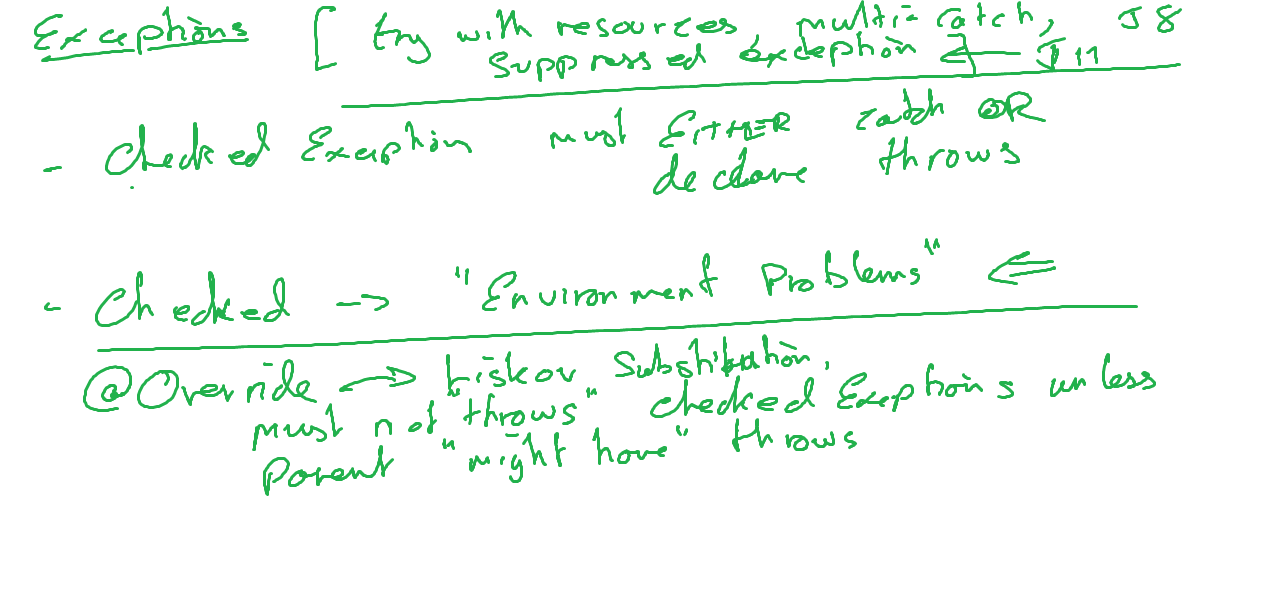 Exceptions [ try with resources, multi-catch, J8
suppressed exception ] ← J11
- Checked Exception must EITHER catch OR
declare throws
- Checked -> "Environment Problems" ⇐
@Override → Liskov Substitution,
must not "throws" checked Exceptions unless
Parent "might have" throws